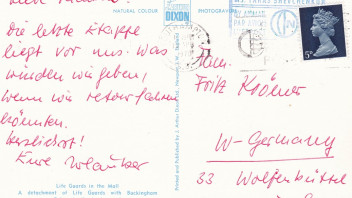 NATURAL COLOUR
DIXON
PHOTOGRAPH
Die letzte Etappe
liegt vor uns. Was
würden wir geben,
wenn wir retour fahren
könnten.
Herzlichst!
Eure
Life Guards in the Mall
A detachment of Life Guards with Buckingham
Printed and Published by J. Arthur Dixon
5P
Fam.
Fritz Krömer
W-Germany
33 Wolfenbüttel